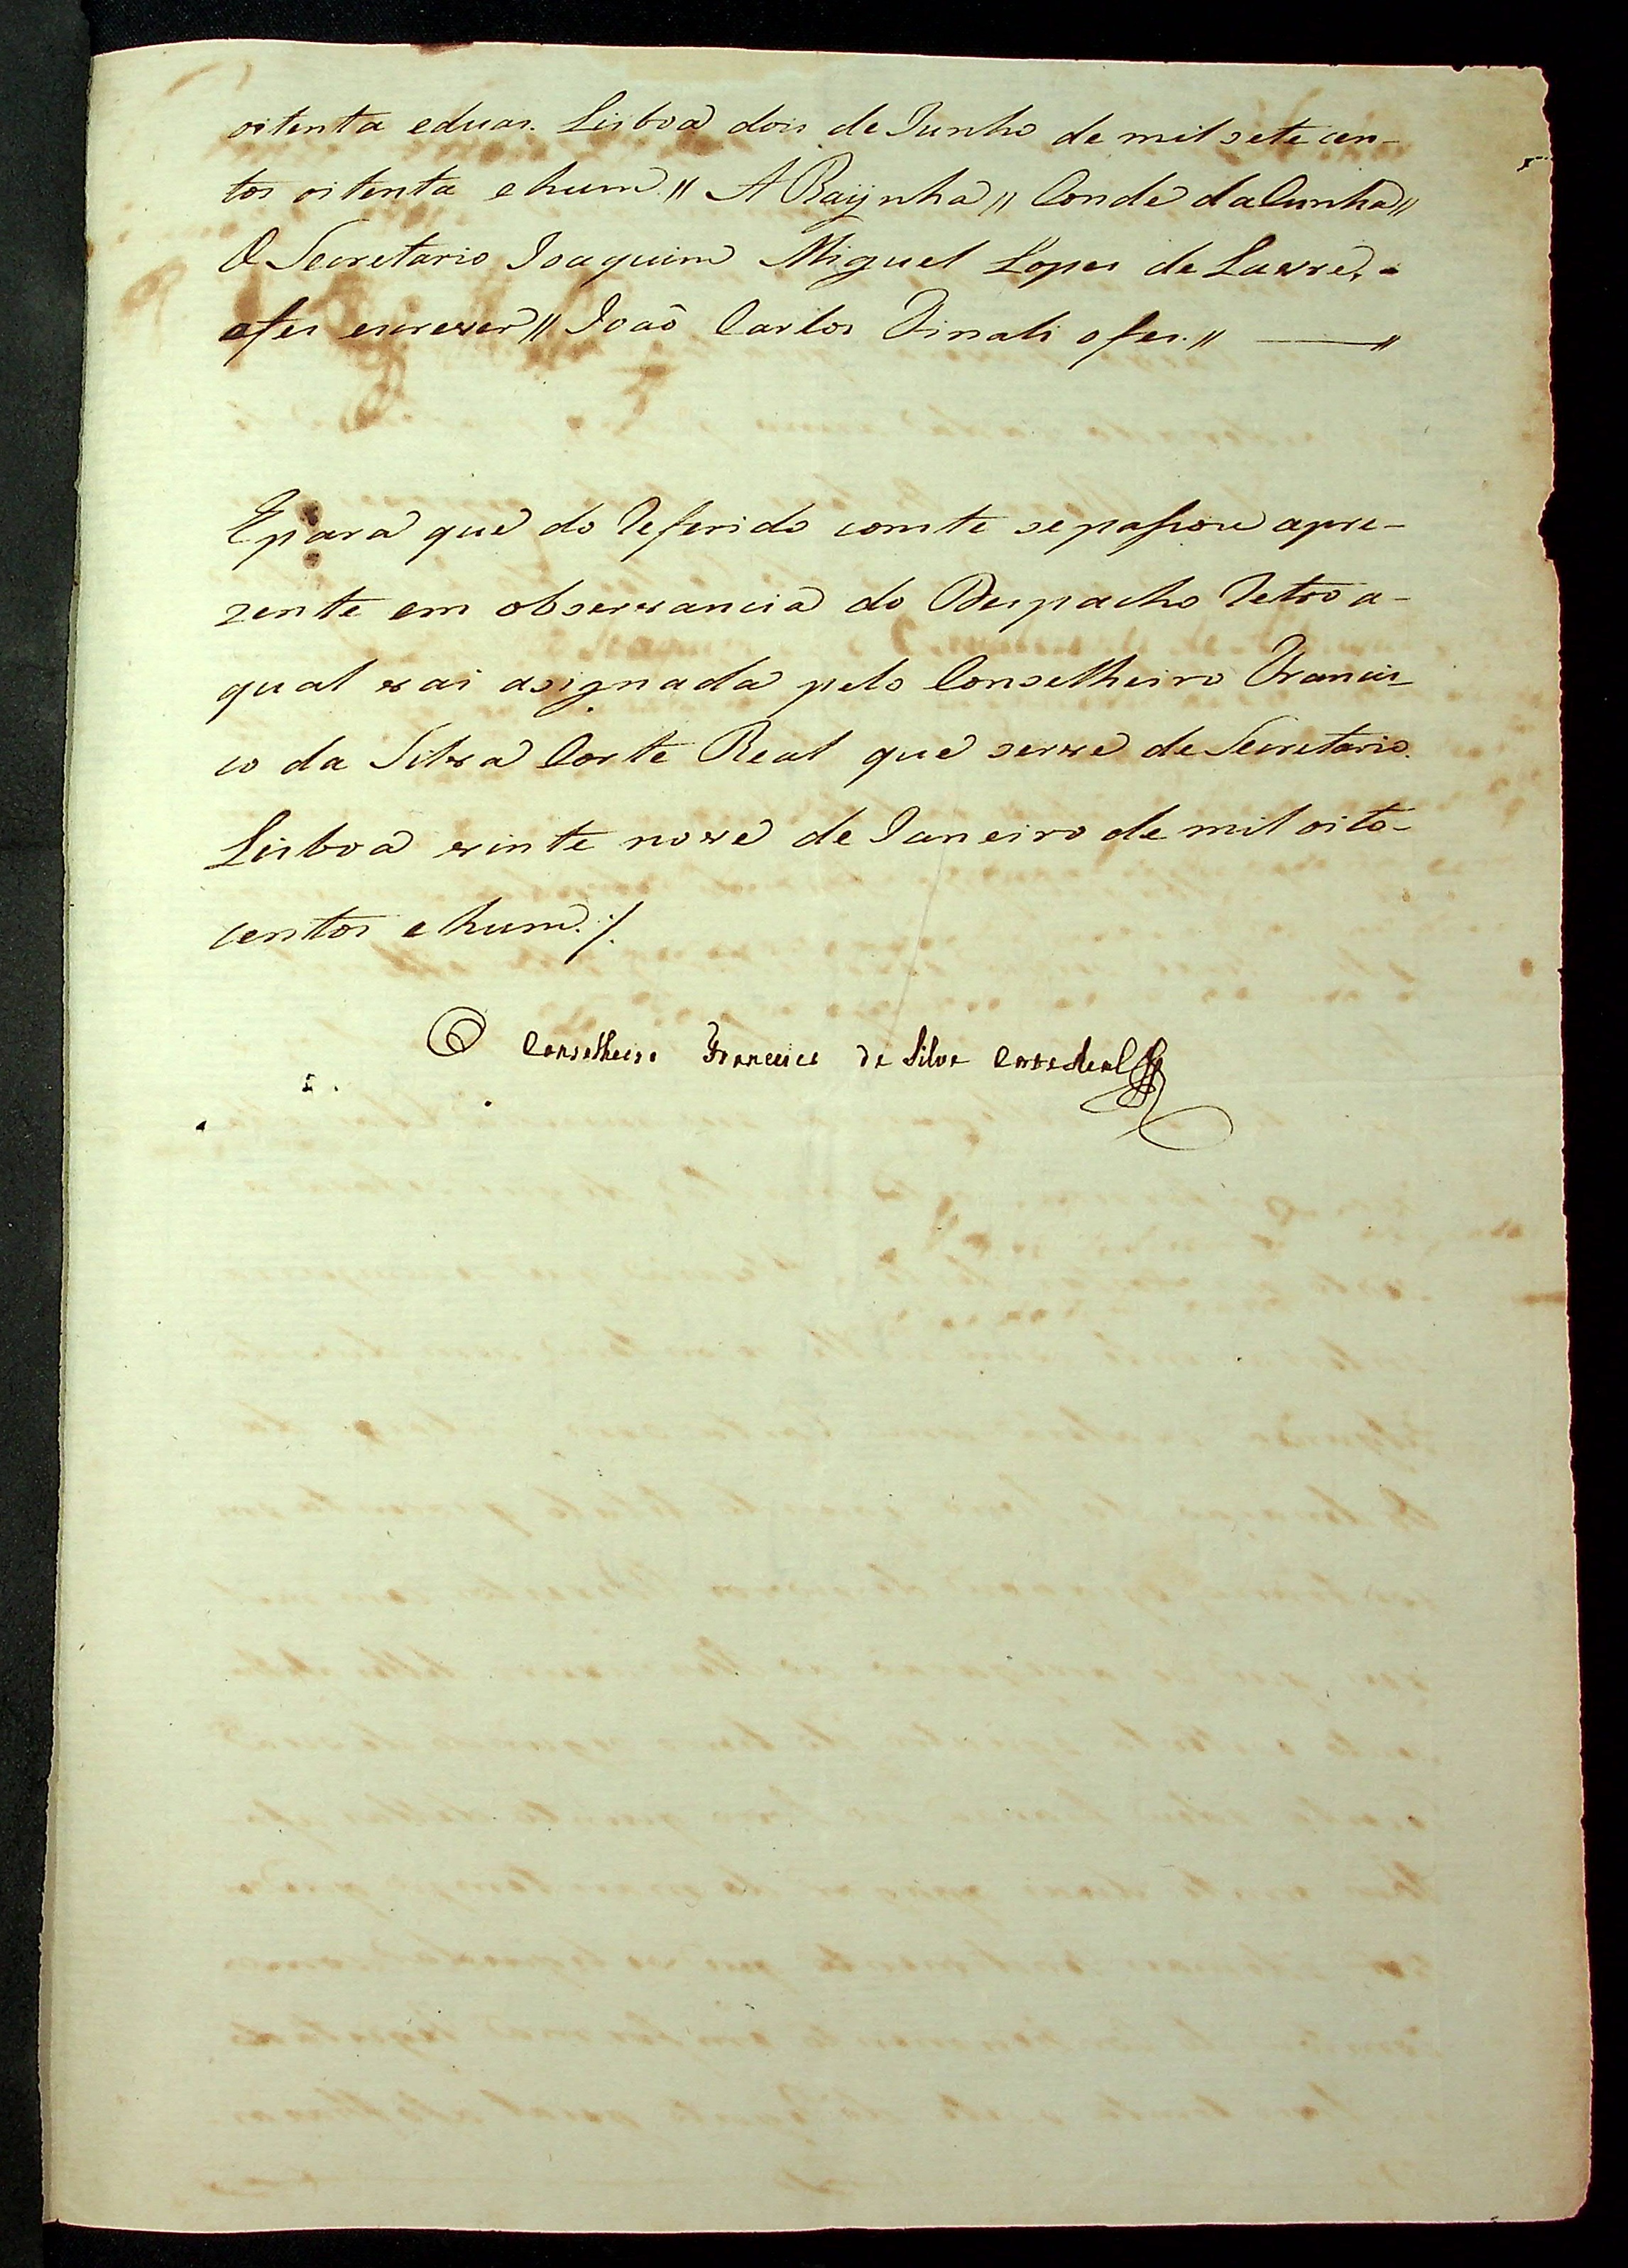 oitenta eduas. Lisboa dois de Junho de mil sete cen-
tos oitenta ehum.// A Raÿnha// Conde da Cunha//
O Secretario Joaquim Miguel Lopes de Lavre, a
afes escrever// Joaõ Carlos Finali ofes.// —//
Epara que do referido conste sepassou apre-
zente em observancia do Despacho retro a-
qual vai asignada pelo Conselheiro Francis-
co da Silva Corte Real que serve de Secretario.
Lisboa vinte nove de Janeiro de mil oito-
centos ehum./.
O Conselheiro Francisco da Silva Corte Real